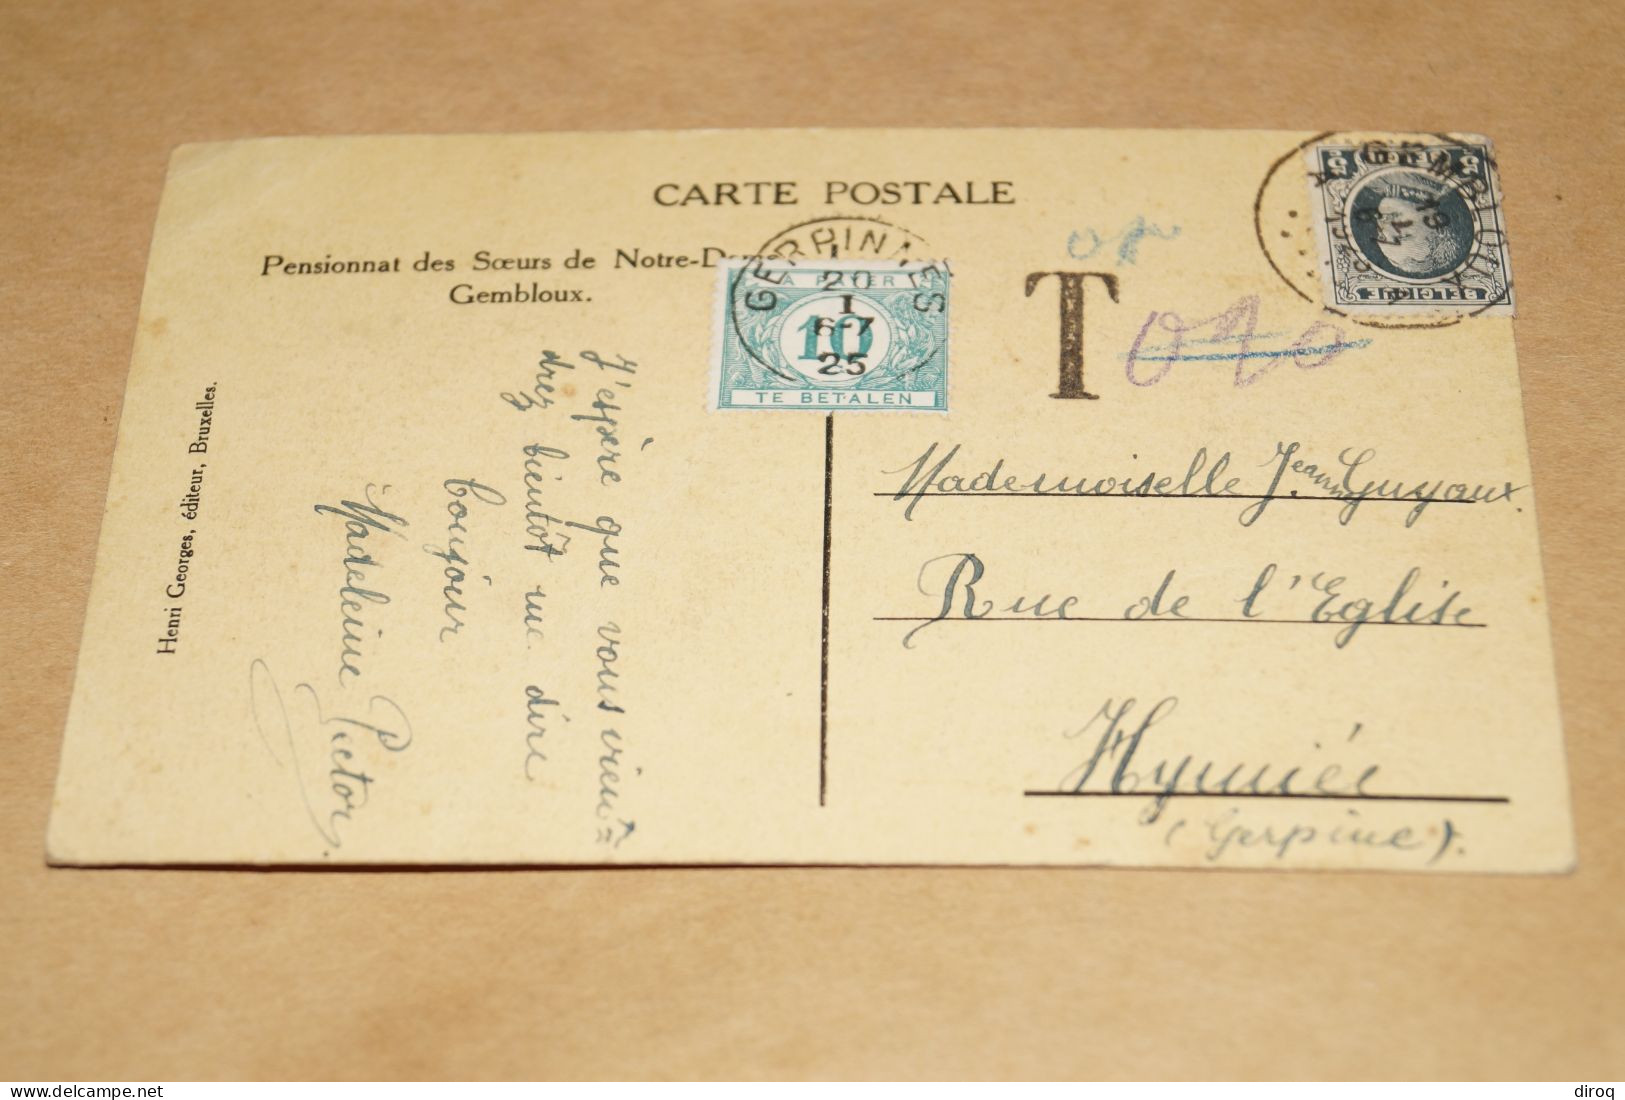 CARTE POSTALE
Pensionnat des Sœurs de Notre-Dame
Gembloux.
GERPINNES
1
20
I
6-7
25
A PAYER
10
TE BETALEN
T
010
GEMBLOUX
BELGIQUE
BELGIË
Mademoiselle Jeanne Guyaux.
Rue de l'Eglise
Hymiée
(Gerpine).
J'espère que vous vien=
drez bientôt me dire
bonjour
Madeleine Pictor.
Henri Georges, éditeur, Bruxelles.
© delcampe.net
diroq